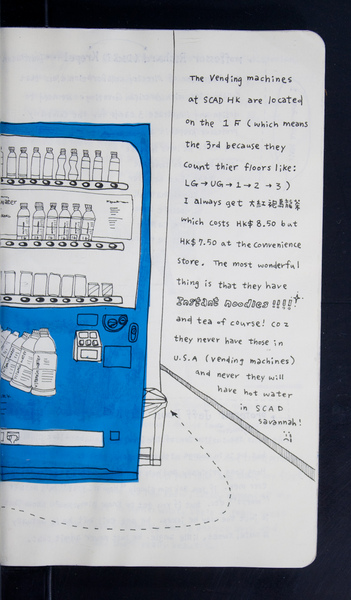 The vending machines
at SCAD HK are located
on the 1F (which means
the 3rd because they
count thier floors like:
LG→UG→1→2→3)
I always get 大紅袍烏龍茶
which costs HK$8.50 but
HK$7.50 at the convenience
store. The most wonderful
thing is that they have
Instant noodles!!!!
and tea of course! coz
they never have those in
U.S.A (vending machines)
and never they will
have hot water
in SCAD
savannah!